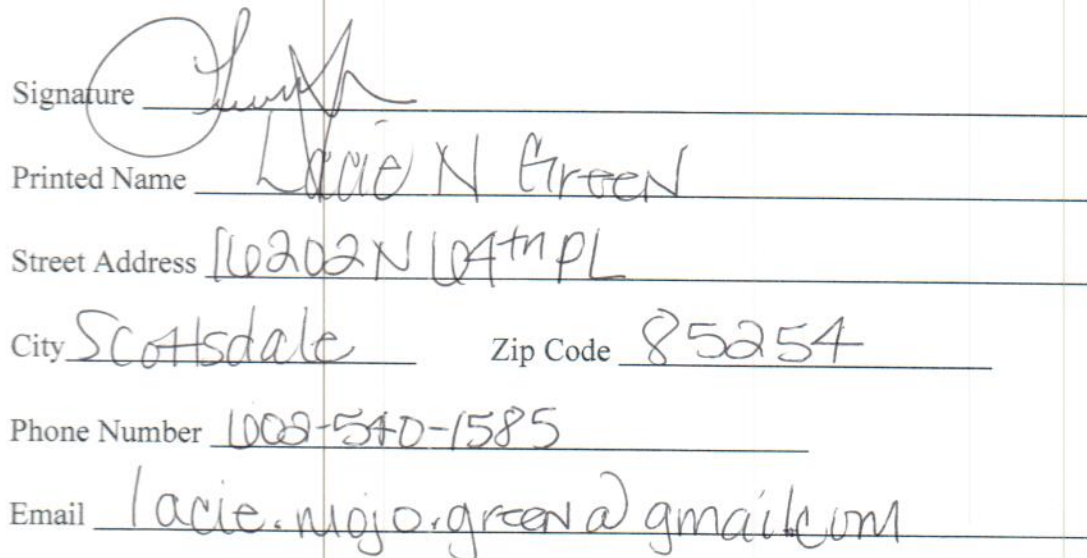 Signature
Printed Name Lacie N Green
Street Address 16202 N 64th PL
City Scottsdale Zip Code 85254
Phone Number 602-540-1585
Email lacie.mojo.green@gmail.com